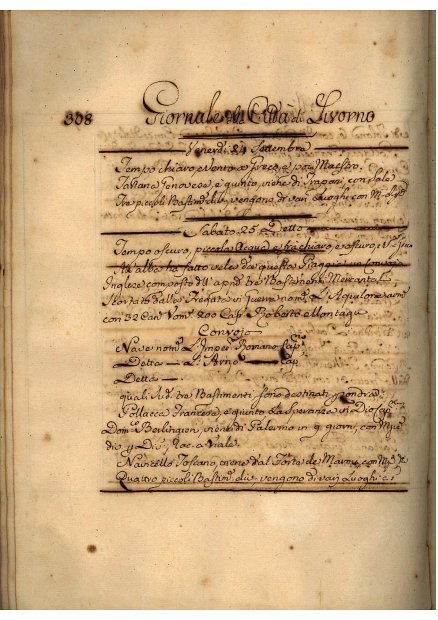 308 Giornale della Città di Livorno
Venerdì 24 Settembra
Tempo chiaro, e vento a Greco, e poi Maestro.
Tartana Genovese, è giunto, viene di Trapani, con Sale
Tre piccoli Bastim. vengono di vari Luoghi con
Sabato 25 Detto
Tempo oscuro, piccola Acqua e tra chiaro, e oscuro, e
All alba ha fatto vele da questa Spiaggia un Convoio
Inglese composto dell'app. tre Bastimenti Mercantil
Scortato dalla Fregata in guerra nom. L'Aquilone arm
con 32 Can. Vom. 200 Cap. Roberto Montagu
Convojo
Nave nom. L'Imper. Romano Cap.
Detta — L'Arno — Cap.
Detta —
quali sud. tre Bastimenti sono destinati p Londra
Pollacca Francese, è giunto La Speranza in Dio Cap.
Dom. Berlinguen, viene di Palermo in 9 giorni, con
die, y Dis, Rac. a Viale.
Navicello Toscano, viene dal Porto di con
Quattro piccoli Bastim. che vengono di vari Luoghi